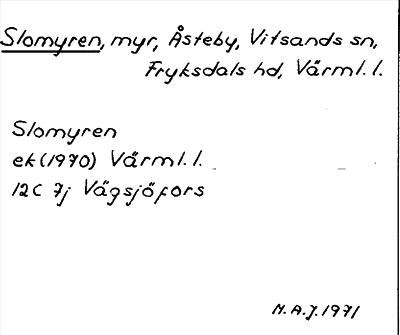 Slomyren, myr, Åsteby, Vitsands sn,
Fryksdals hd, Värml. l.
Slomyren
ek (1970) Värml. l.
12C 7j Vägsjöfors
M.A.J. 1971